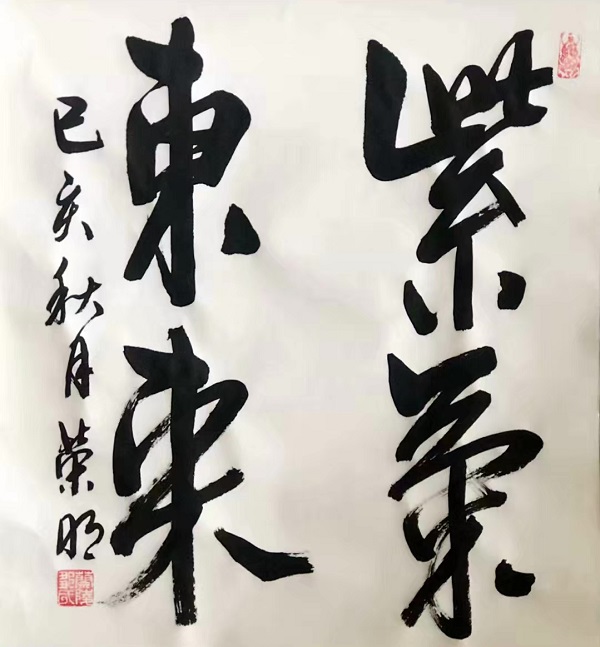 紫氣
東來
己亥秋月榮明